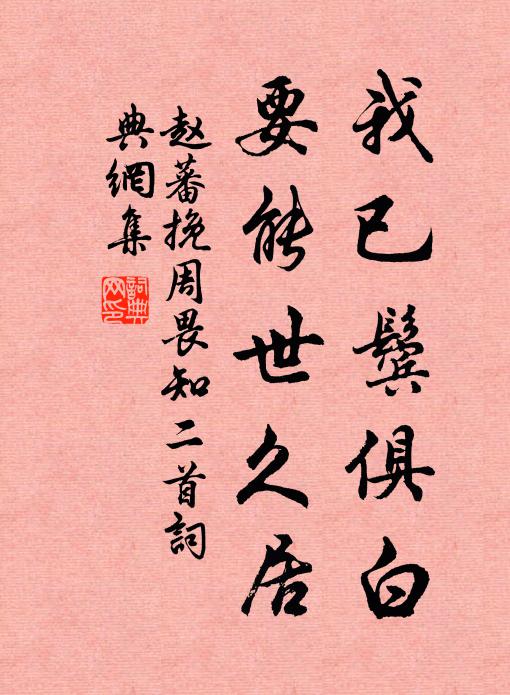 我已鬓俱白
要能世久居
赵蕃挽周畏知二首詞
典網集
詞典
网印